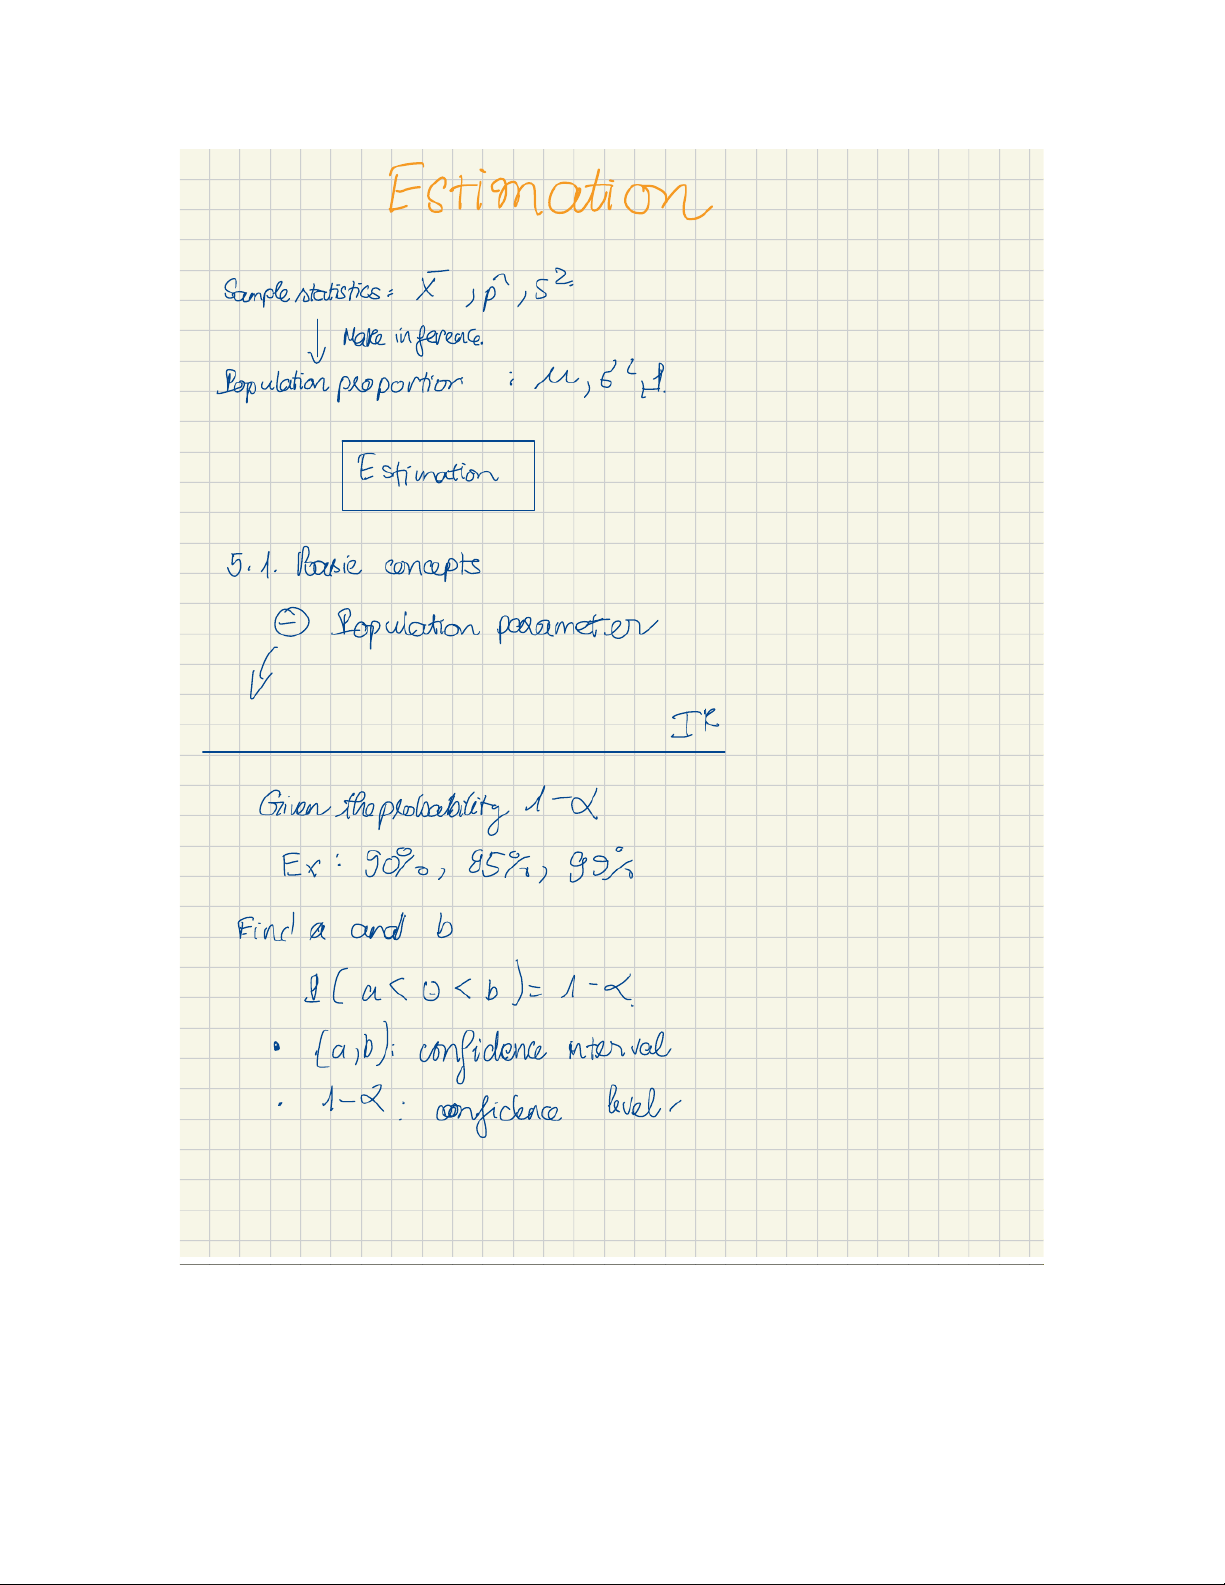 Estimation
Sample statistics: X̄, p̂, S².
Make inference.
Population proportion : μ, σ², P.
Estimation
5.1. Basic concepts
Θ Population parameter
IR
Given the probability 1-α
Ex: 90%, 95%, 99%
Find a and b
P(a < Θ < b) = 1-α.
• (a,b): confidence interval
• 1-α: confidence level